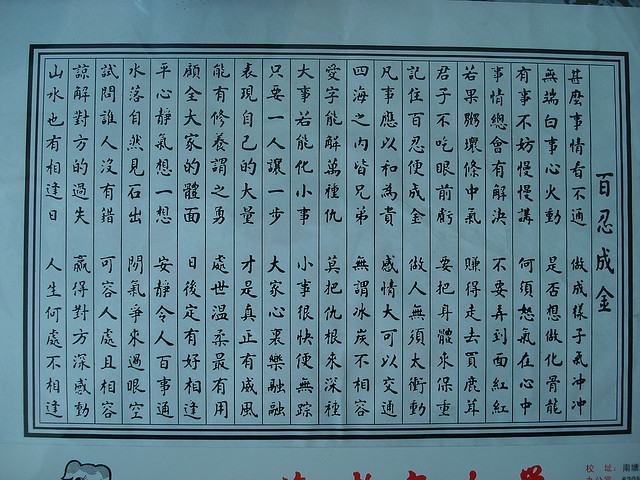 百忍成金
甚麼事情看不通 做成樣子氣冲冲
無端白事心火動 是否想做化骨龍
有事不妨慢慢講 何須怒氣在心中
事情總會有解決 不要弄到面紅紅
若果嬲壞條中氣 賺得走去買鹿茸
君子不吃眼前虧 要把身體來保重
記住百忍便成金 做人無須太衝動
凡事應以和為貴 感情大可以交通
四海之內皆兄弟 無謂冰炭不相容
愛字能解萬種仇 莫把仇根來深種
大事若能化小事 小事很快便無踪
只要一人讓一步 大家心裏樂融融
表現自己的大量 才是真正有威風
能有修養謂之勇 處世温柔最有用
顧全大家的體面 日後定有好相逢
平心靜氣想一想 安靜令人百事通
水落自然見石出 閒氣爭來過眼空
試問誰人沒有錯 可容人處且相容
諒解對方的過失 贏得對方深感動
山水也有相逢日 人生何處不相逢
校 址：南塘